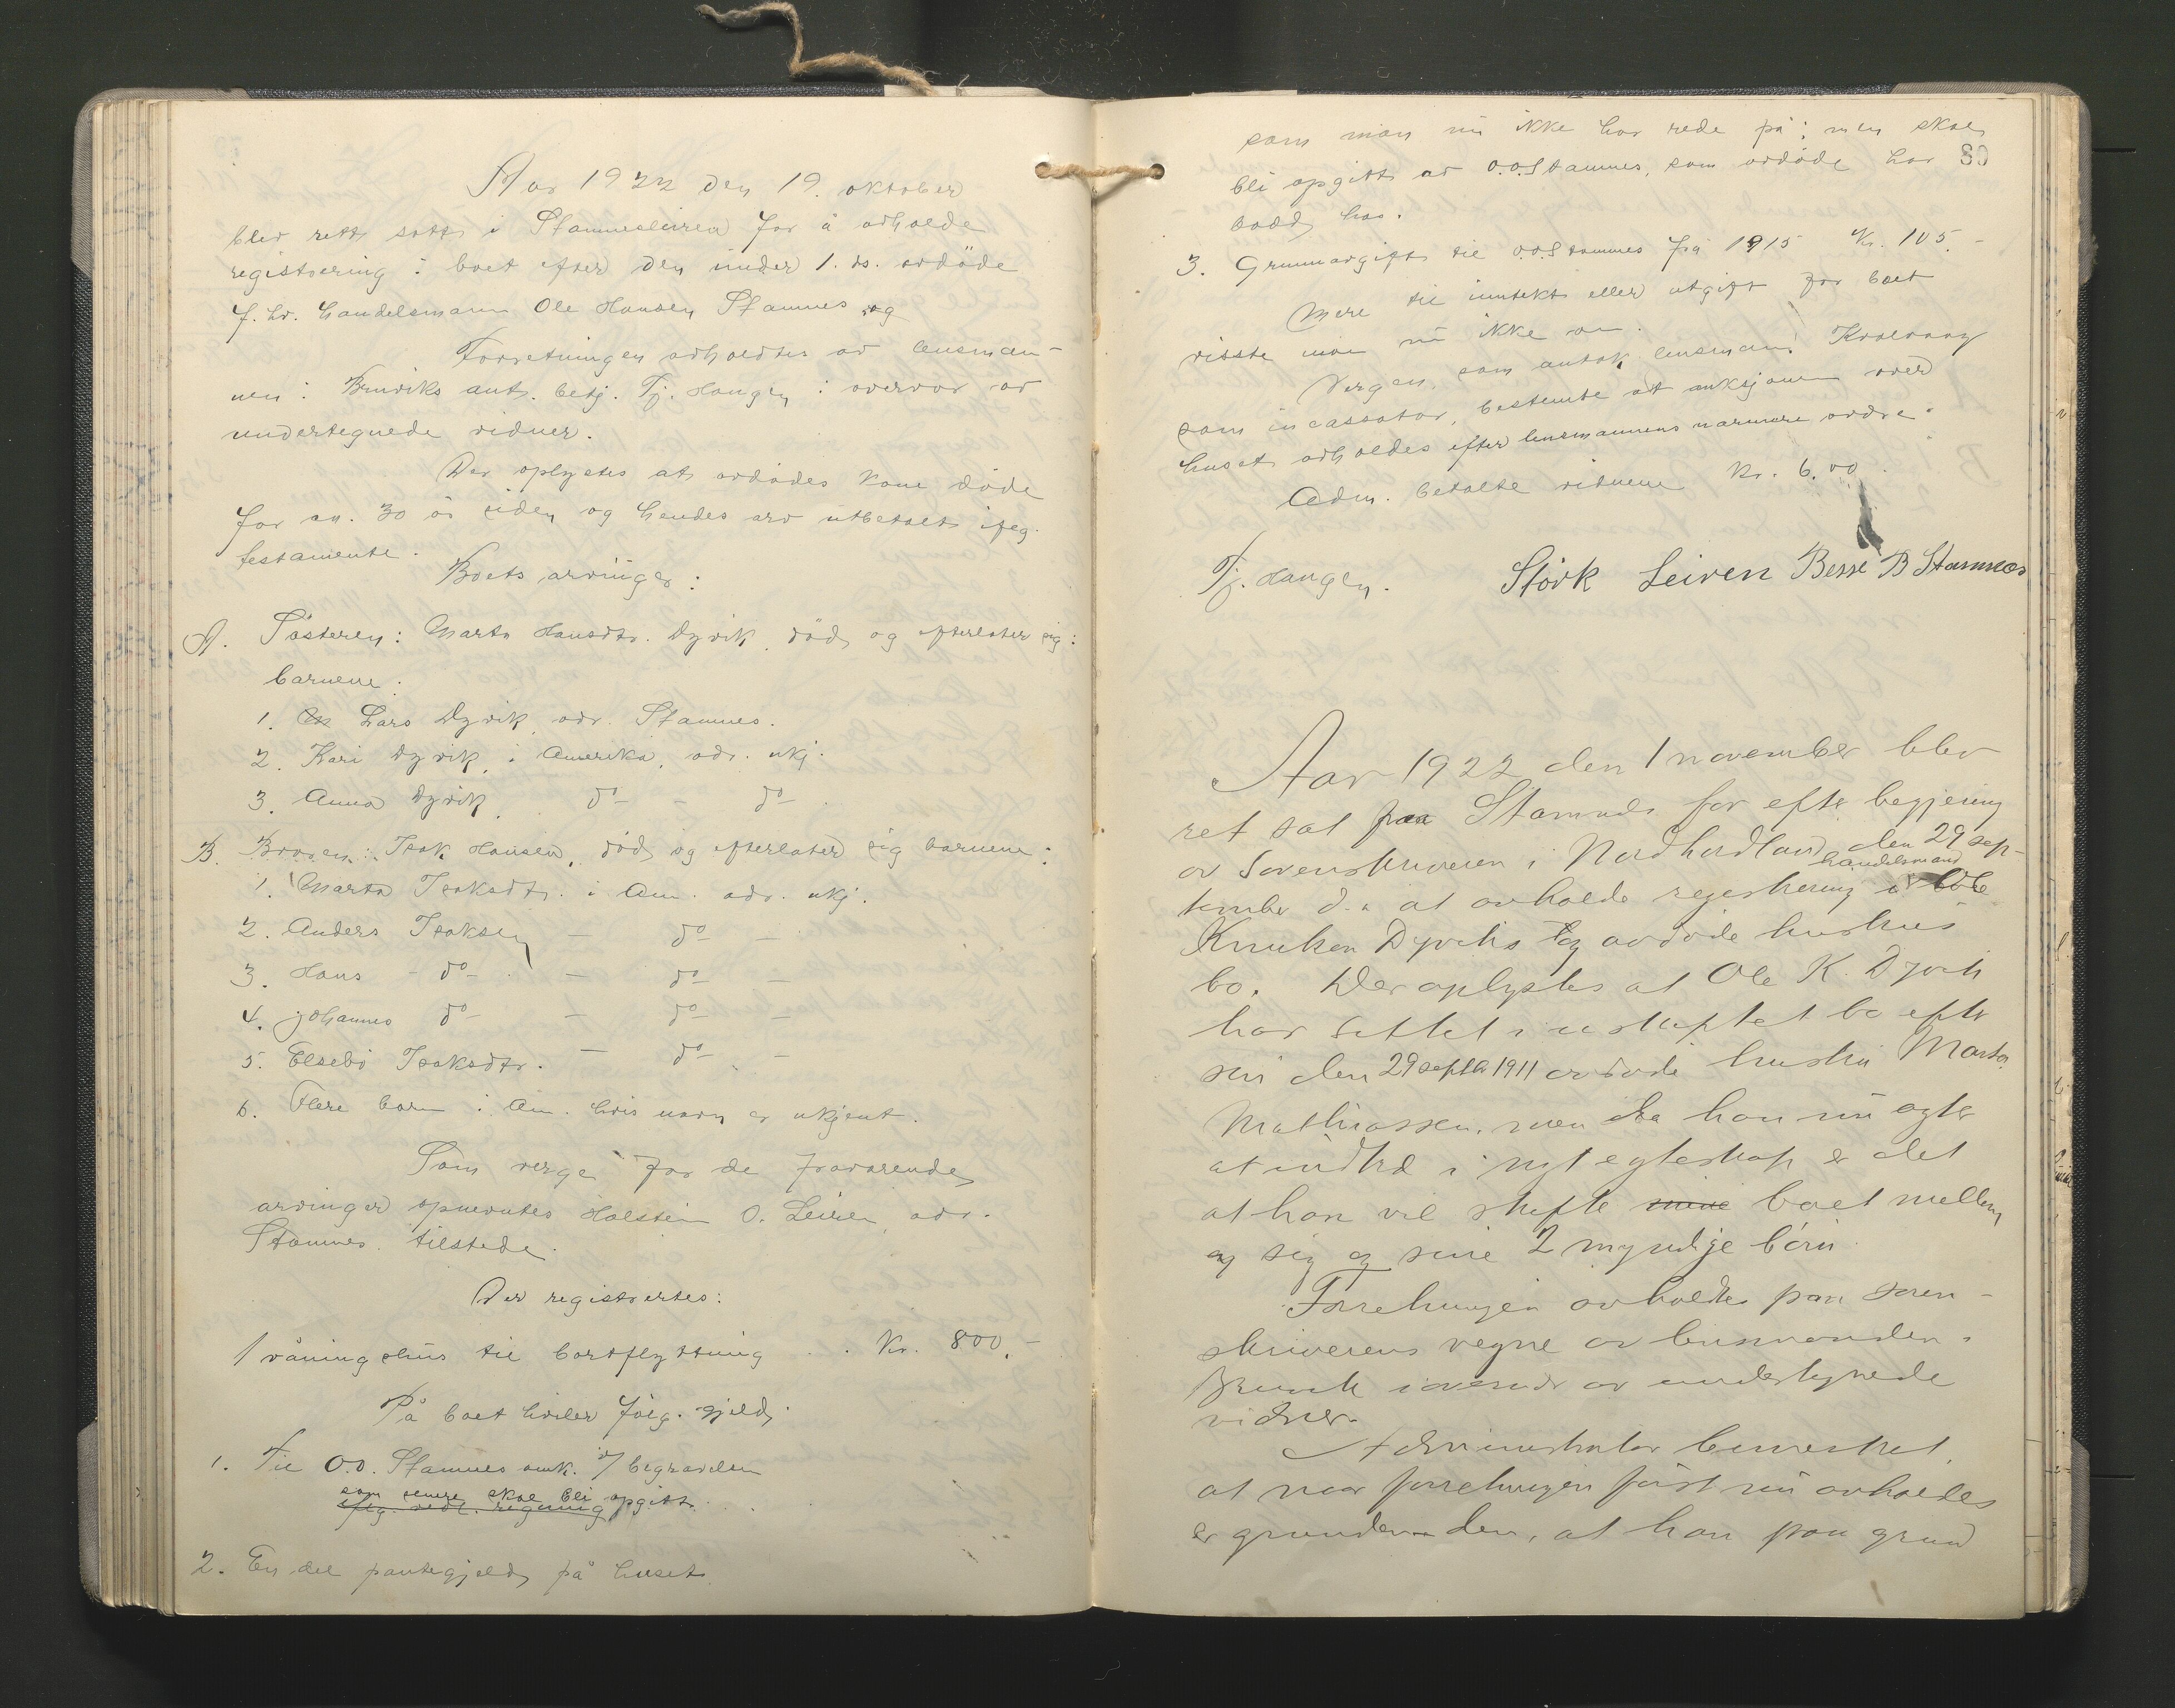 Aar 1922 den 19. oktober
blev rett satt i Stamnesleiren for å avholde
registrering i boet efter den under 1. ds. avdöde
f. hv. handelsmann Ole Hansen Stamnes og
Forretningen avholdtes av lensman-
nen i Bruviks aut. betj. Tj. Haugen i overvær av
undertegnede vidner.
Der oplystes at avdödes kone döde
for ca. 30 år siden og hendes arv utbetalt ifög.
testamente.
Boets arvinger:
A. Sösteren: Marta Hansdtr. Dyvik, död og efterlater sig:
barnene:
1. Lars Dyvik, adr. Stamnes.
2. Kari Dyvik, i Amerika, adr. ukj.
3. Anna Dyvik, do - do
B. Broren: Isak Hansen, död og efterlater sig barnene:
1. Marta Isaksdtr. i Am. adr. ukj.
2. Anders Isaksen - do -
3. Hans - do - - do -
4. Johannes do - - do -
5. Elsebö Isaksdtr. - do -
6. Flere barn i Am. hvis navn er ukjent.
Som verge for de fraværende
arvinger opnevntes Halstein O. Leiren, adr.
Stamnes. tilstede.
Der registrertes:
1 våningshus til bortflyttning . . Kr. 800,-
På boet hviler fölg. gjeld:
1. Til O.O. Stamnes omk. v/ begravelsen
som senere skal bli opgitt.
ifög. vedl. regning
2. En del pantegjeld på huset
80
som man nu ikke har rede på; men skal
bli opgitt av O.O. Stamnes, som avdöde har
bodd hos.
3. Grunnavgift til O.O. Stamnes fra 1915 Kr. 105.-
Mere til inntekt eller utgift for boet
visste man nu ikke om.
Vergen, som antok lensmann
som incassator, bestemte at auksjonen over
huset avholdes efter lensmannens nærmere ordre.
Adm. betalte vidnene Kr. 6.00.
Tj. Haugen. Störk Leiren Besse B Stamnes
Aar 1922 den 1 november blev
ret sat paa Stamnes for efter begjering
av Sorenskriveren i Nordhordland den 29 sep-
tember d.a. at avholde registrering i
handelsmand
Ole
Knutsen Dyviks og avdöde hustrus
bo. Der oplystes at Ole K. Dyvik
har sittet i uskiftet bo efter
sin den 29 septbr 1911 avdöde hustru Marta
Mathiassen, men da han nu agter
at indtræ i nyt egteskap er det
at han vil skifte mine boet mellem
sig og sine 2 myndige börn.
Forretningen avholdtes paa soren-
skriverens vegne av lensmanden i
Bruvik i overvær av undertegnede
vidner.
Administrator bemerket,
at naar forretningen först nu avholdes
er grunden den, at han paa grund